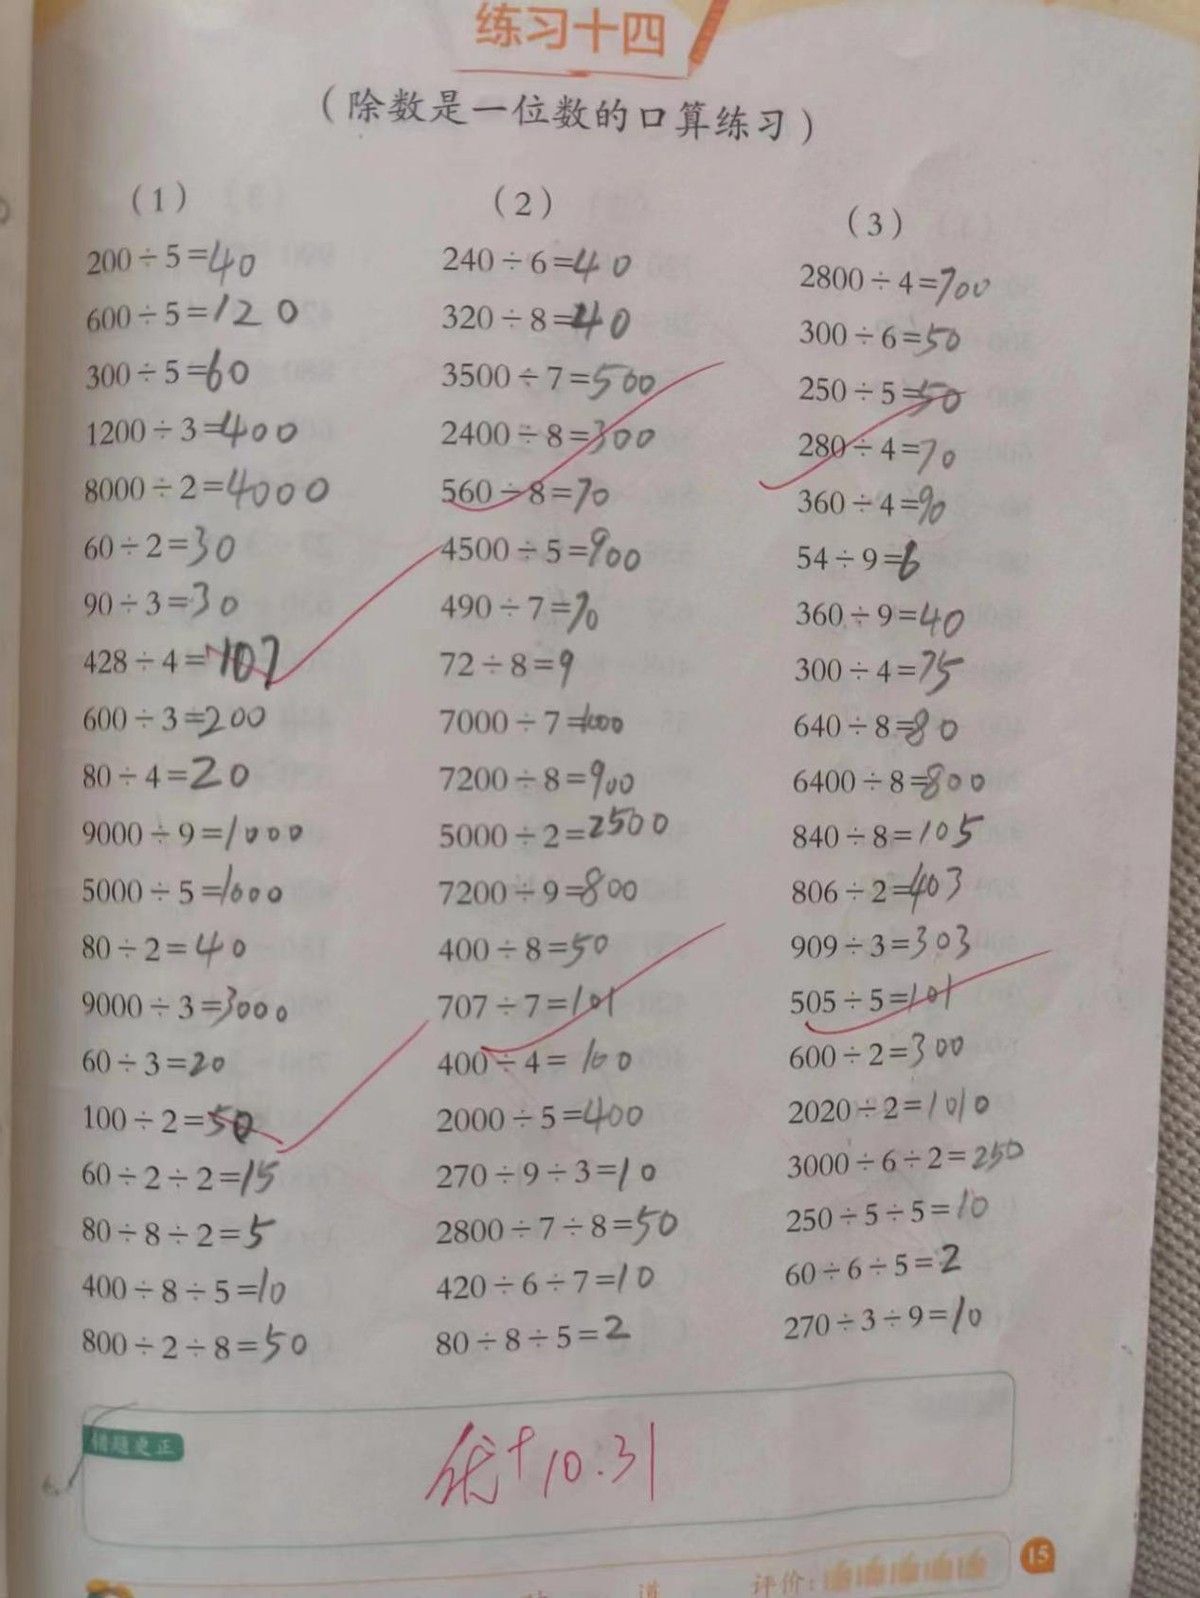 练习十四
（除数是一位数的口算练习）
（1）
200÷5=40
600÷5=120
300÷5=60
1200÷3=400
8000÷2=4000
60÷2=30
90÷3=30
428÷4=107
600÷3=200
80÷4=20
9000÷9=1000
5000÷5=1000
80÷2=40
9000÷3=3000
60÷3=20
100÷2=50
60÷2÷2=15
80÷8÷2=5
400÷8÷5=10
800÷2÷8=50
（2）
240÷6=40
320÷8=40
3500÷7=500
2400÷8=300
560÷8=70
4500÷5=900
490÷7=70
72÷8=9
7000÷7=1000
7200÷8=900
5000÷2=2500
7200÷9=800
400÷8=50
707÷7=101
400÷4=100
2000÷5=400
270÷9÷3=10
2800÷7÷8=50
420÷6÷7=10
80÷8÷5=2
（3）
2800÷4=700
300÷6=50
250÷5=50
280÷4=70
360÷4=90
54÷9=6
360÷9=40
300÷4=75
640÷8=80
6400÷8=800
840÷8=105
806÷2=403
909÷3=303
505÷5=101
600÷2=300
2020÷2=1010
3000÷6÷2=250
250÷5÷5=10
60÷6÷5=2
270÷3÷9=10
错题更正
优+10.31
道 评价：
15